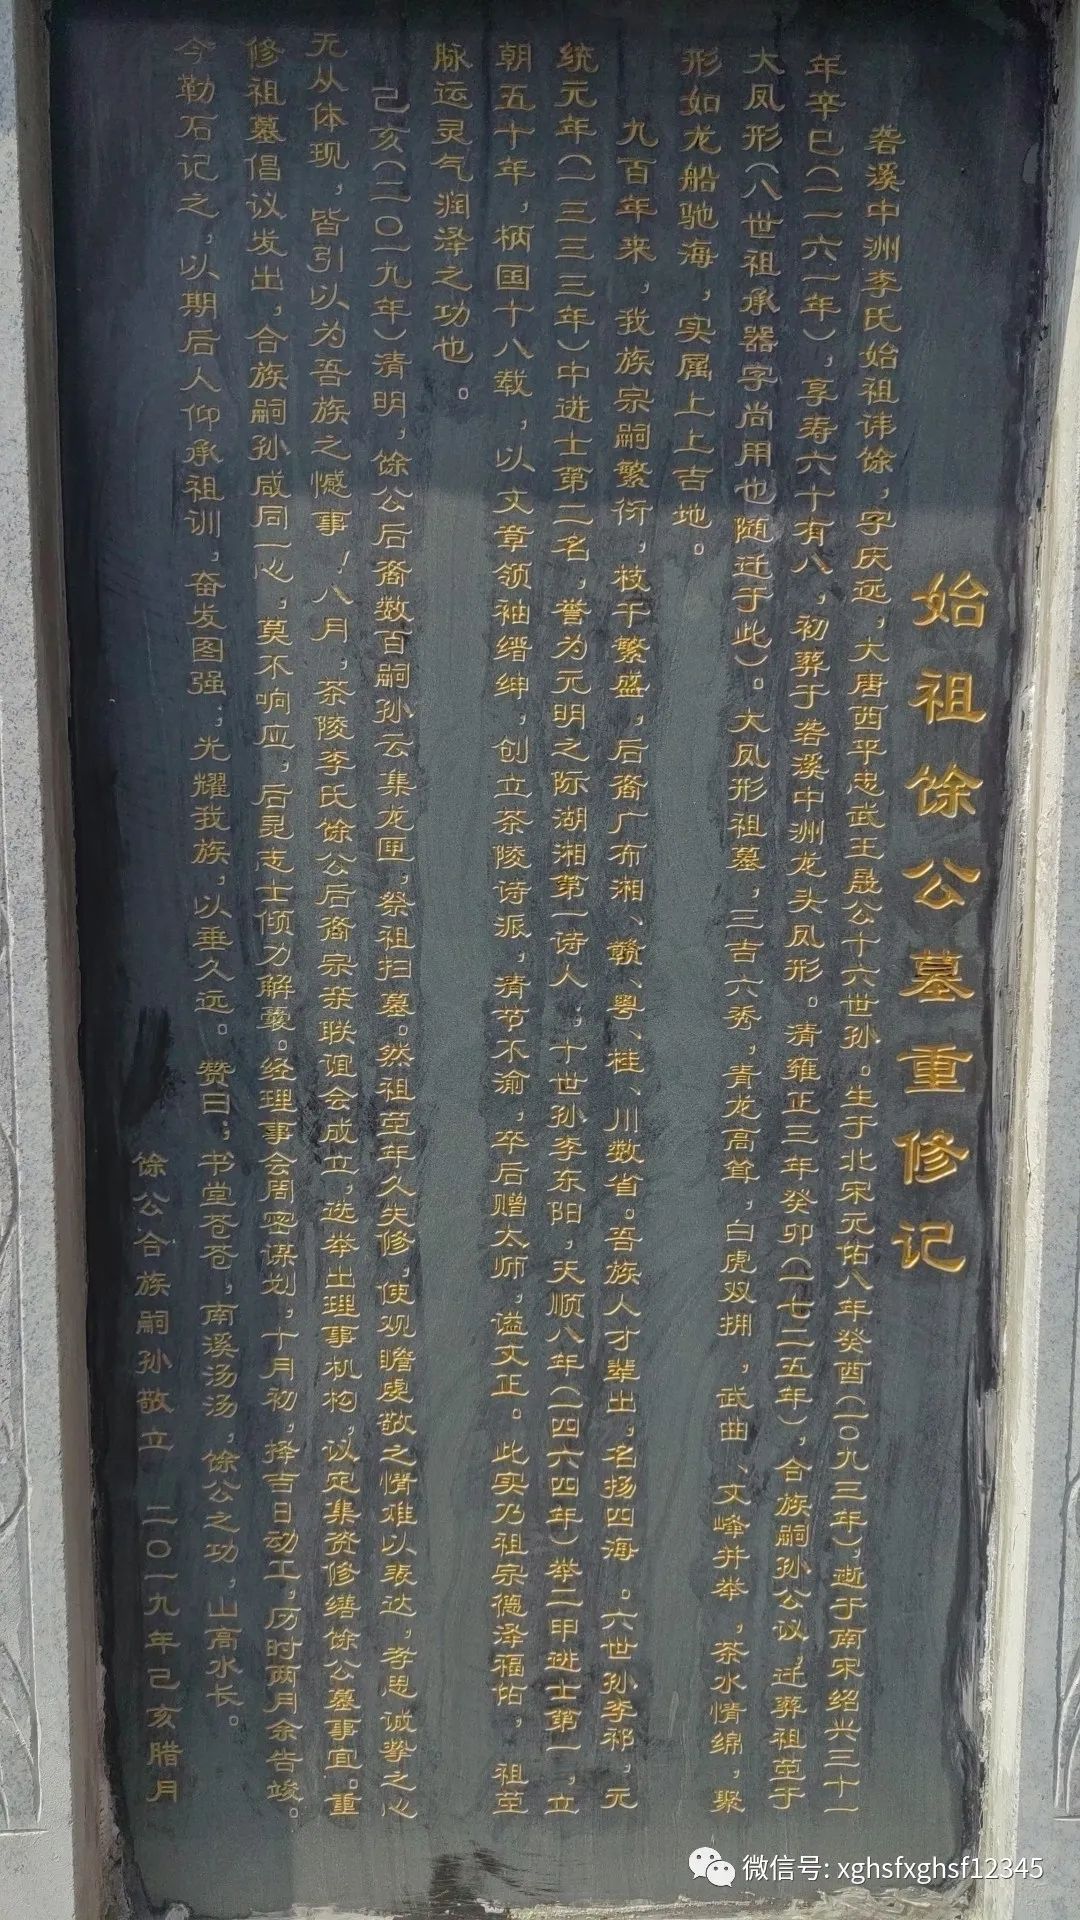 始祖馀公墓重修记
砻溪中洲李氏始祖讳馀，字庆远，大唐西平忠武王晟公十六世孙。生于北宋元佑八年癸酉（一〇九三年），逝于南宋绍兴三十一
年辛巳（一一六一年），享寿六十有八，初葬于砻溪中洲龙头凤形。清雍正三年癸卯（一七二五年），合族嗣孙公议，迁葬祖茔于
大凤形（八世祖承器字尚用也随迁于此）。大凤形祖墓，三吉六秀，青龙高耸，白虎双拥，武曲、文峰并举，茶水情绵，聚
形如龙船驰海，实属上上吉地。
九百年来，我族宗嗣繁衍，枝干繁盛，后裔广布湘、赣、粤、桂、川数省。吾族人才辈出，名扬四海。六世孙李祁，元
统元年（一三三三年）中进士第二名，誉为元明之际湖湘第一诗人，十世孙李东阳，天顺八年（一四六四年）举二甲进士第一，立
朝五十年，柄国十八载，以文章领袖缙绅，创立茶陵诗派，清节不渝，卒后赠太师，谥文正。此实乃祖宗德泽福佑，祖茔
脉运灵气润泽之功也。
己亥（二〇一九年）清明，馀公后裔数百嗣孙云集龙匣，祭祖扫墓。然祖茔年久失修，使观瞻虔敬之情难以表达，孝思诚挚之心
无从体现，皆引以为吾族之憾事！八月，茶陵李氏馀公后裔宗亲联谊会成立，选举出理事机构，议定集资修缮馀公墓事宜。重
修祖墓倡议发出，合族嗣孙咸同一心，莫不响应，后昆志士倾力解囊。经理事会周密谋划，十月初，择吉日动工，历时两月余告竣。
今勒石记之，以期后人仰承祖训，奋发图强，光耀我族，以垂久远。赞曰：书堂苍苍，南溪汤汤，馀公之功，山高水长。
馀公合族嗣孙敬立 二〇一九年己亥腊月
微信号: xghsfxghsf12345